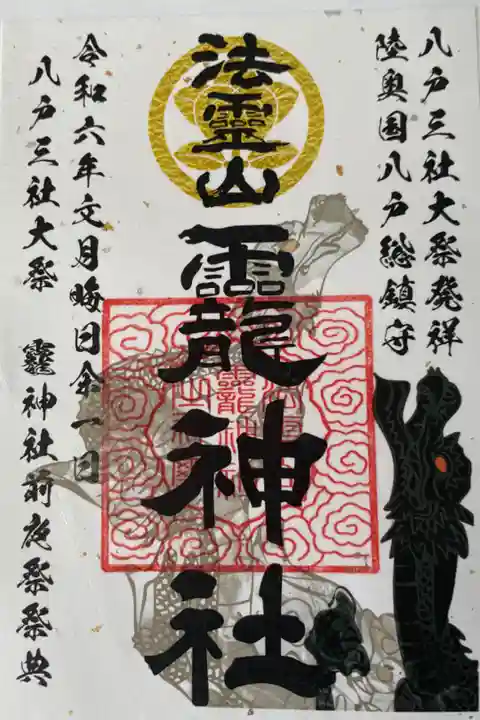 八戸三社大祭発祥
陸奥国八戸総鎮守
法靈山龗神社
令和六年文月晦日余一日
八戸三社大祭 龗神社前夜祭祭典